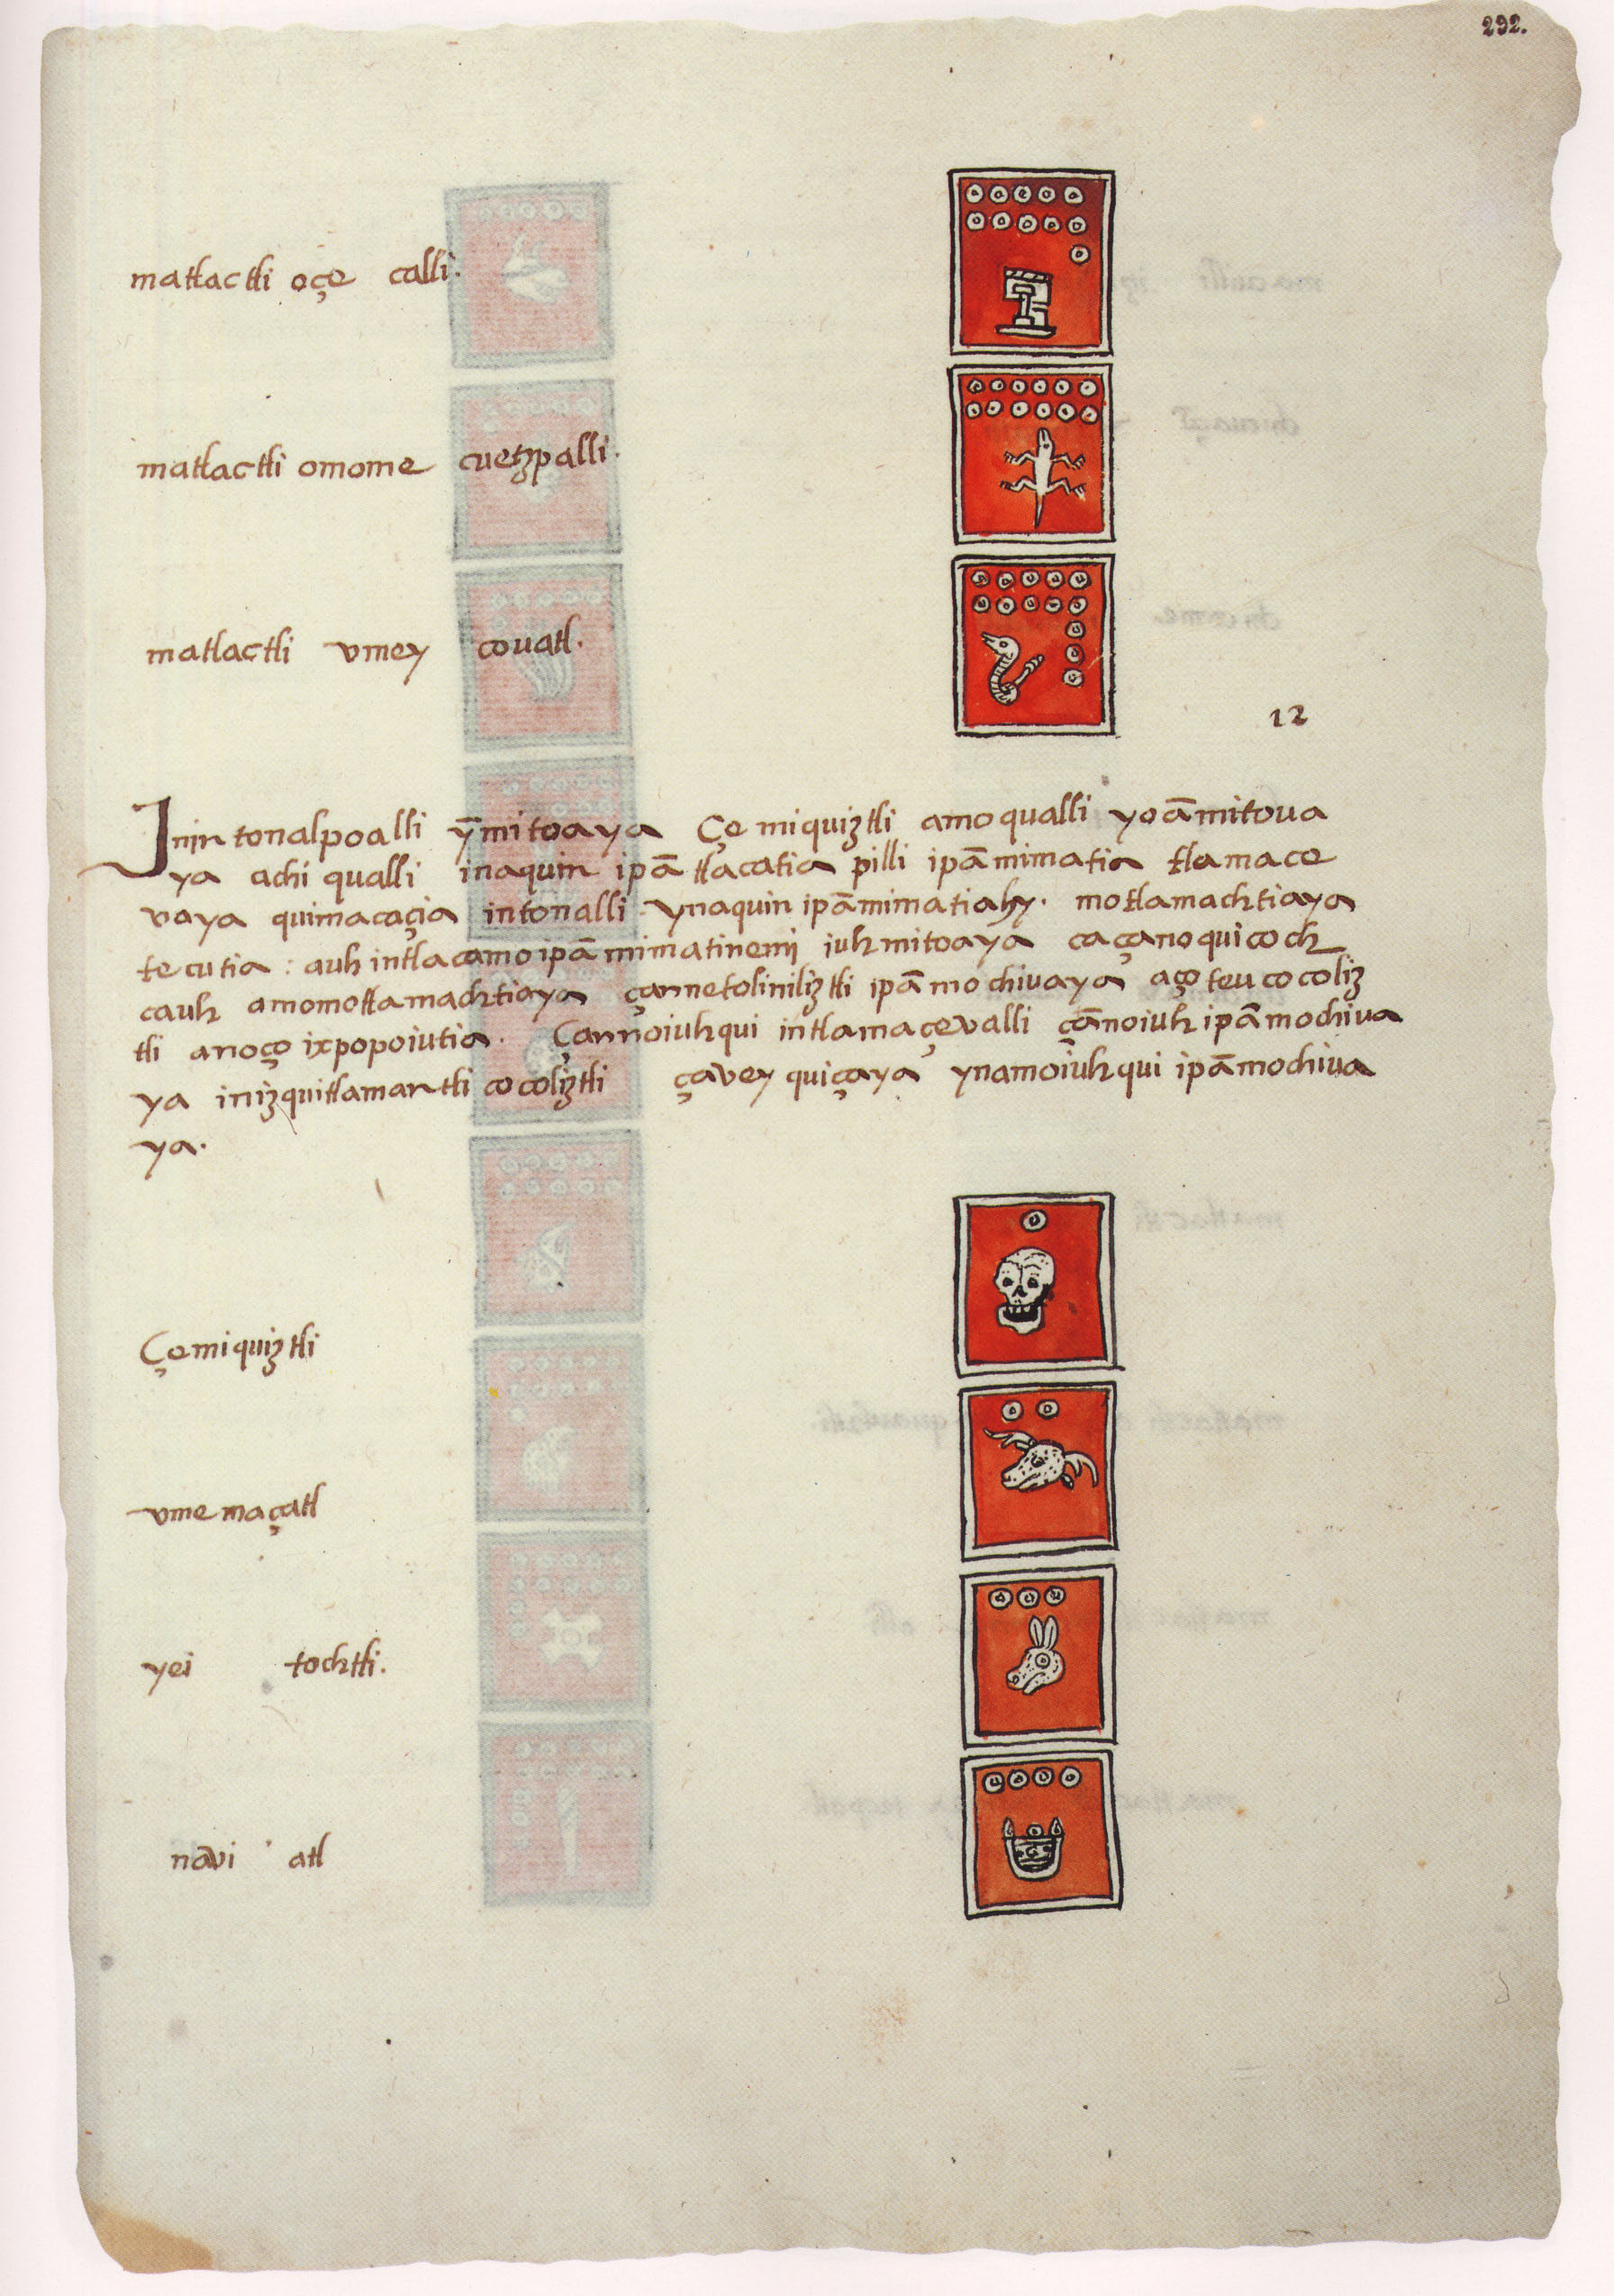 292.
matlactli oçe calli.
matlactli omome cuetzpalli.
matlactli vmey couatl.
12
Inin tonalpoalli ȳmitoaya Çe miquiztli amo qualli yoāmitoua
ya achi qualli inaquin ipā tlacatia pilli ipā mimatia tlamace
vaya quimacaçia in tonalli ynaquin ipā mimatia hy. motlamachtiaya
tecutia: auh intlacamo ipā mimatinemj iuh mitoaya ca çano qui coch
cauh amomotlamachtiaya çannetoliniliztli ipā mochivaya aço teucocoliz
tli anoço ixpopoiutia. Çannoiuhqui intlamaçevalli çānoiuh ipā mochiva
ya inizquitlamantli cocoliztli çavey quiçaya ynamoiuhqui ipā mochiva
ya.
Çemiquiztli
vme maçatl
yei tochtli.
navi atl